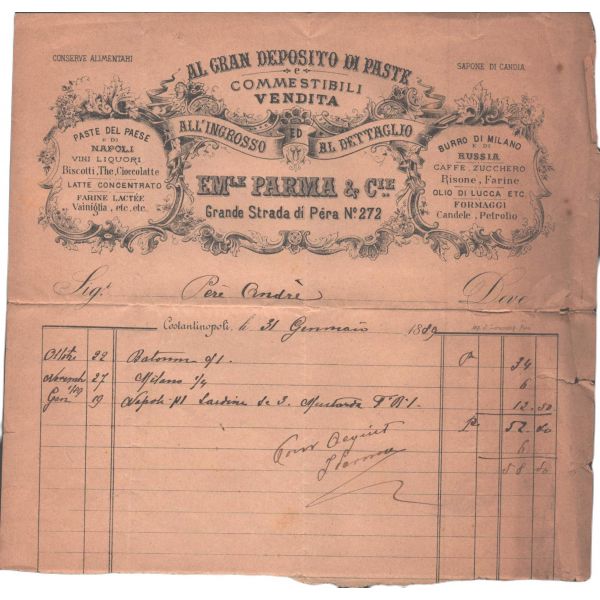 CONSERVE ALIMENTARI
AL GRAN DEPOSITO DI PASTE
e
COMMESTIBILI
VENDITA
ALL'INGROSSO ED AL DETTAGLIO
SAPONE DI CANDIA
PASTE DEL PAESE
E DI
NAPOLI
VINI LIQUORI
Biscotti, The, Cioccolatte
LATTE CONCENTRATO
FARINE LACTÉE
Vainiglia, etc. etc.
EM.LE PARMA & CIE
Grande Strada di Péra No 272
BURRO DI MILANO
E DI
RUSSIA
CAFFE, ZUCCHERO
Risone, Farine
OLIO DI LUCCA ETC.
FORMAGGI
Candele, Petrolio
Sig.r Père Andrè Deve
Costantinopoli, li 31 Gennaio 1889
Ottobre 22 Batoum P 34
Novemb 27 Milano 1/4 6
1889
Gen 19 Napoli Sardine de 3. Mustarda 12.50
P. 52.50
Pour Acquit 6
58 50
Parma